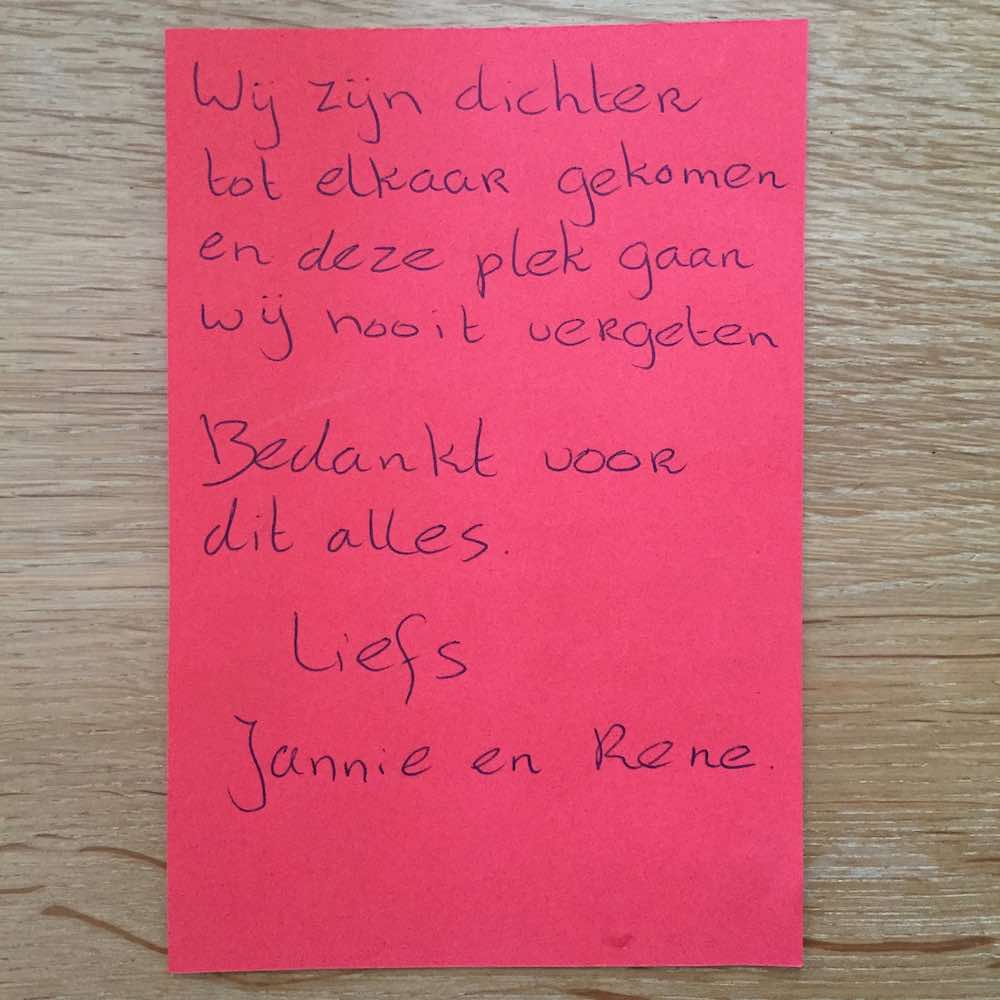 Wij zijn dichter
tot elkaar gekomen
en deze plek gaan
wij nooit vergeten
Bedankt voor
dit alles.
Liefs
Jannie en Rene.